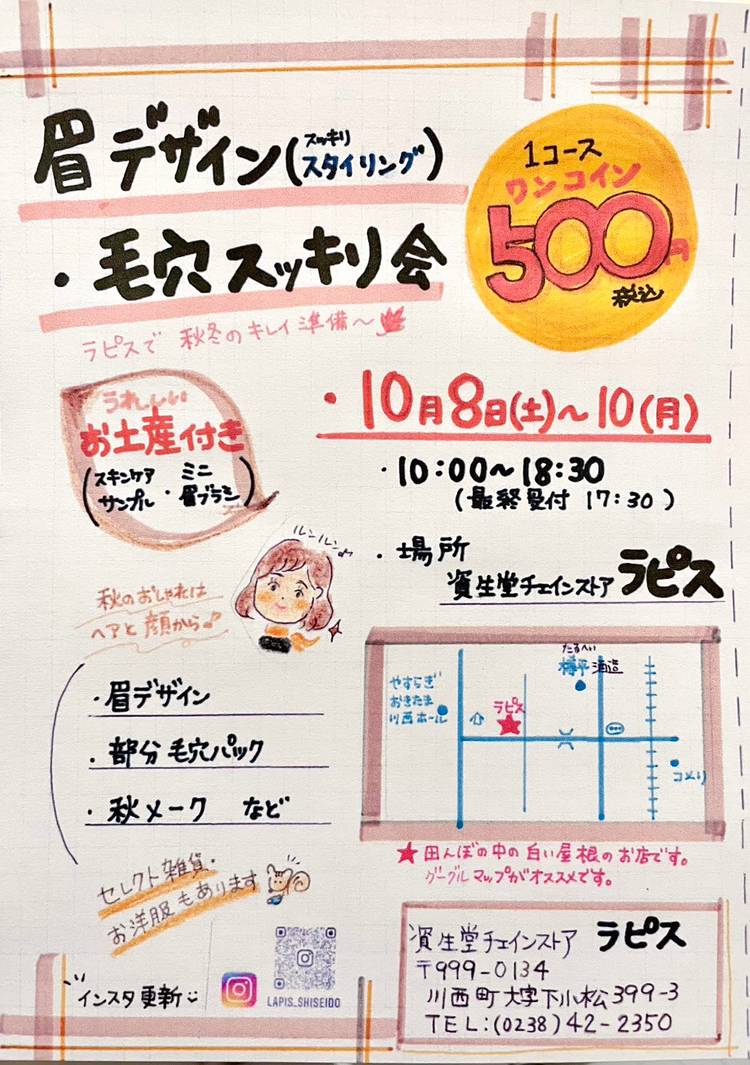 眉デザイン(スッキリスタイリング)
・毛穴スッキリ会
1コース
ワンコイン
500円
税込
ラピスで 秋冬のキレイ準備～
うれしい
お土産付き
(スキンケアサンプル・ミニ眉ブラシ)
・10月8日(土)～10(月)
・10:00～18:30
(最終受付 17:30)
・場所
資生堂チェインストア ラピス
ルンルン♪
秋のおしゃれは
ヘアと顔から♪
・眉デザイン
・部分毛穴パック
・秋メーク など
やすらぎ
おきたま
川西ホール
ラピス
たるへい
樽平酒造
コメリ
★田んぼの中の白い屋根のお店です。
グーグルマップがオススメです。
セレクト雑貨・
お洋服もあります
インスタ更新
LAPIS_SHISEIDO
資生堂チェインストア ラピス
〒999-0134
川西町大字下小松399-3
TEL:(0238)42-2350